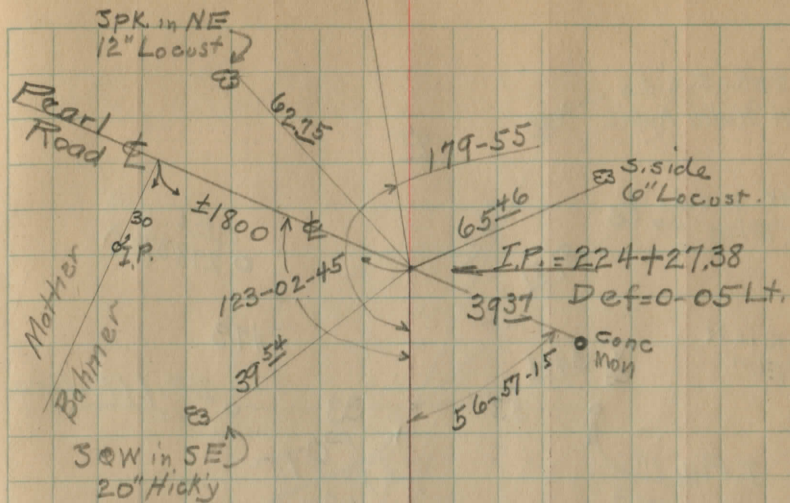 3pk. in NE
12" Locust
Pearl
Road ℄
62 75
179-55
S. side
6" Locust.
65 46
±1800 ℄
30
I.P.
I.P. = 224+27.38
Def=0-05 Lt.
123-02-45
39 37
Conc
Mon
Mather
Bahmer
39 54
56-57-15
in SE
20" Hick'y